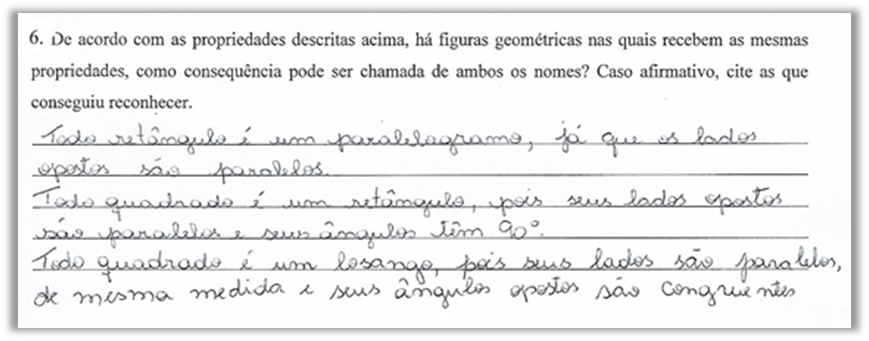 6. De acordo com as propriedades descritas acima, há figuras geométricas nas quais recebem as mesmas
propriedades, como consequência pode ser chamada de ambos os nomes? Caso afirmativo, cite as que
conseguiu reconhecer.
Todo retângulo é um paralelogramo, já que os lados
opostos são paralelos.
Todo quadrado é um retângulo, pois seus lados opostos
são paralelos e seus ângulos têm 90°.
Todo quadrado é um losango, pois seus lados são paralelos,
de mesma medida e seus ângulos opostos são congruentes